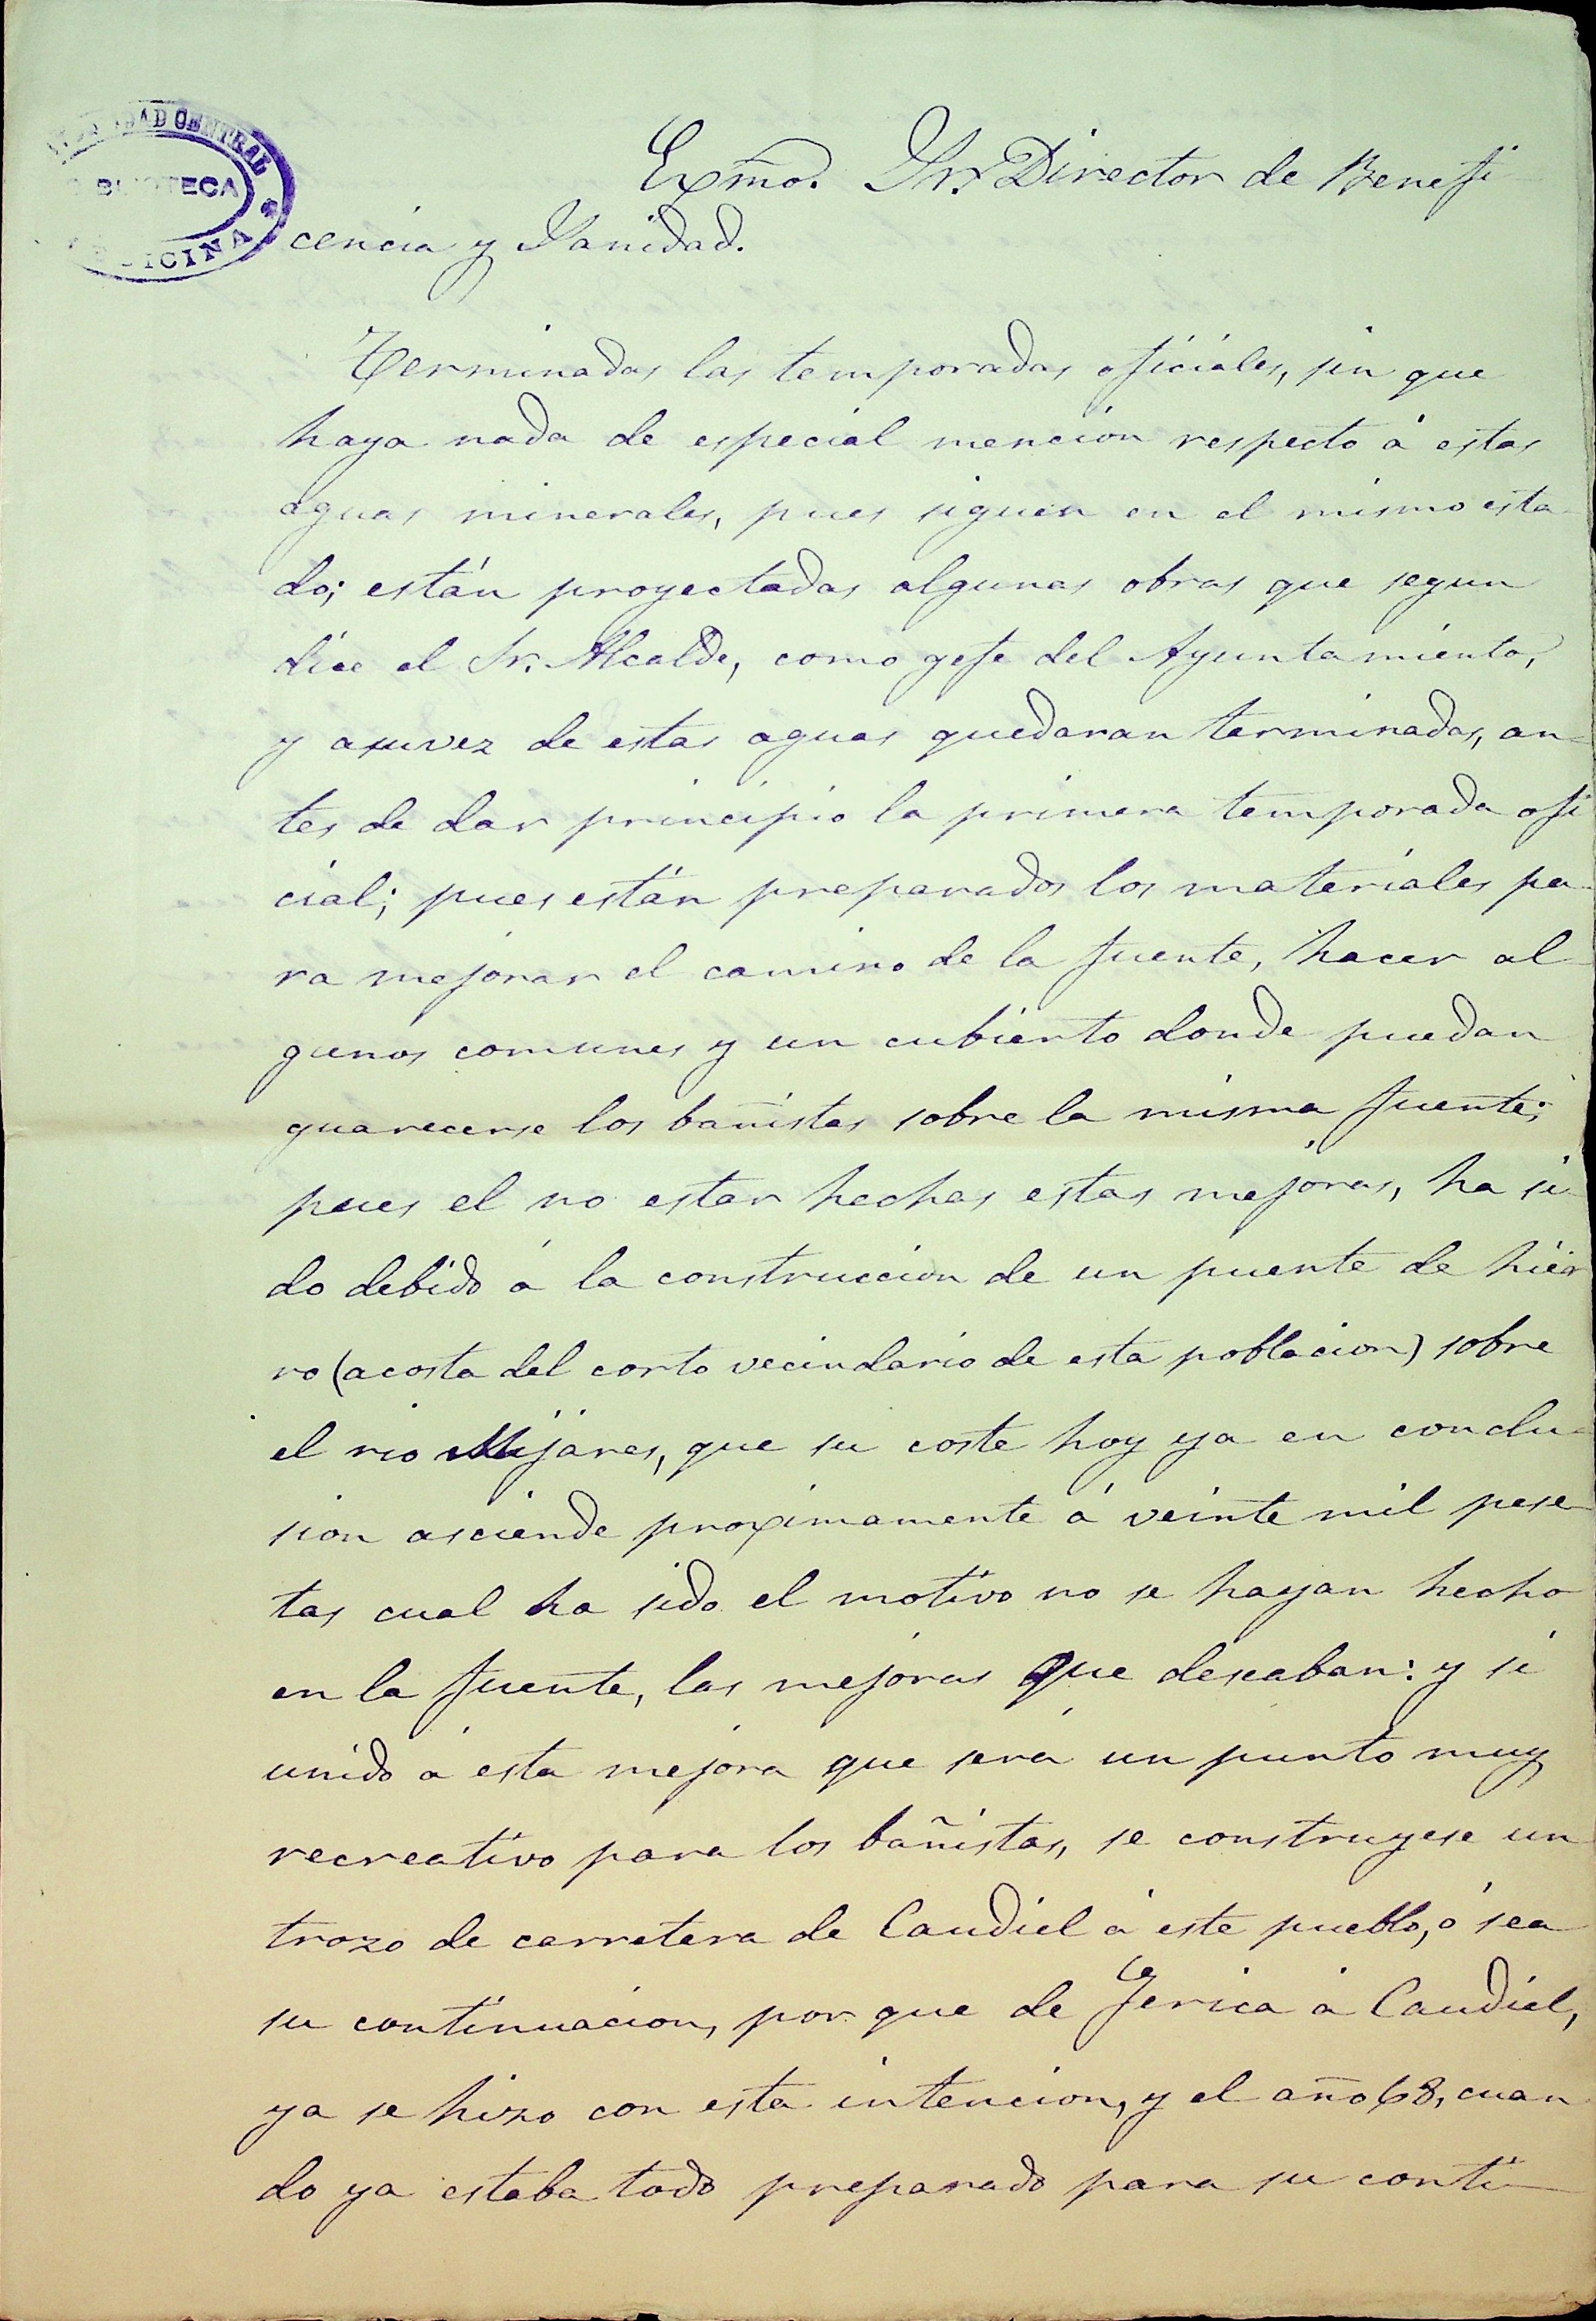 CENTRAL
MEDICINA
Exmo. Sr. Director de Benefi
cencia y Sanidad.
Terminadas las temporadas oficiales, sin que
haya nada de especial mencion respecto á estas
aguas minerales, pues siguen en el mismo esta-
do; están proyectadas algunas obras que segun
dice el Sr. Alcalde, como gefe del Ayuntamiento,
y asuvez de estas aguas quedaran terminadas, an-
tes de dar principio la primera temporada ofi
cial; pues están preparados los materiales pa-
ra mejorar el camino de la fuente, hacer al-
gunos comunes y un cubierto donde puedan
guarecerse los bañistas sobre la misma fuente;
pues el no estar hechas estas mejoras, ha si-
do debido á la construccion de un puente de hier
ro (acosta del corto vecindario de esta poblacion) sobre
el rio Mijares, que su coste hoy ya en conclu-
sion asciende proximamente á veinte mil pese-
tas cual ha sido el motivo no se hayan hecho
en la fuente, las mejoras que deseaban: y si
unido á esta mejora que será un punto muy
recreativo para los bañistas, se construyese un
trozo de carretera de Caudiel á este pueblo, ó sea
su continuacion, por que de Jerica á Caudiel,
ya se hizo con esta intencion, y el año 68, cuan
do ya estaba todo preparado para su conti-